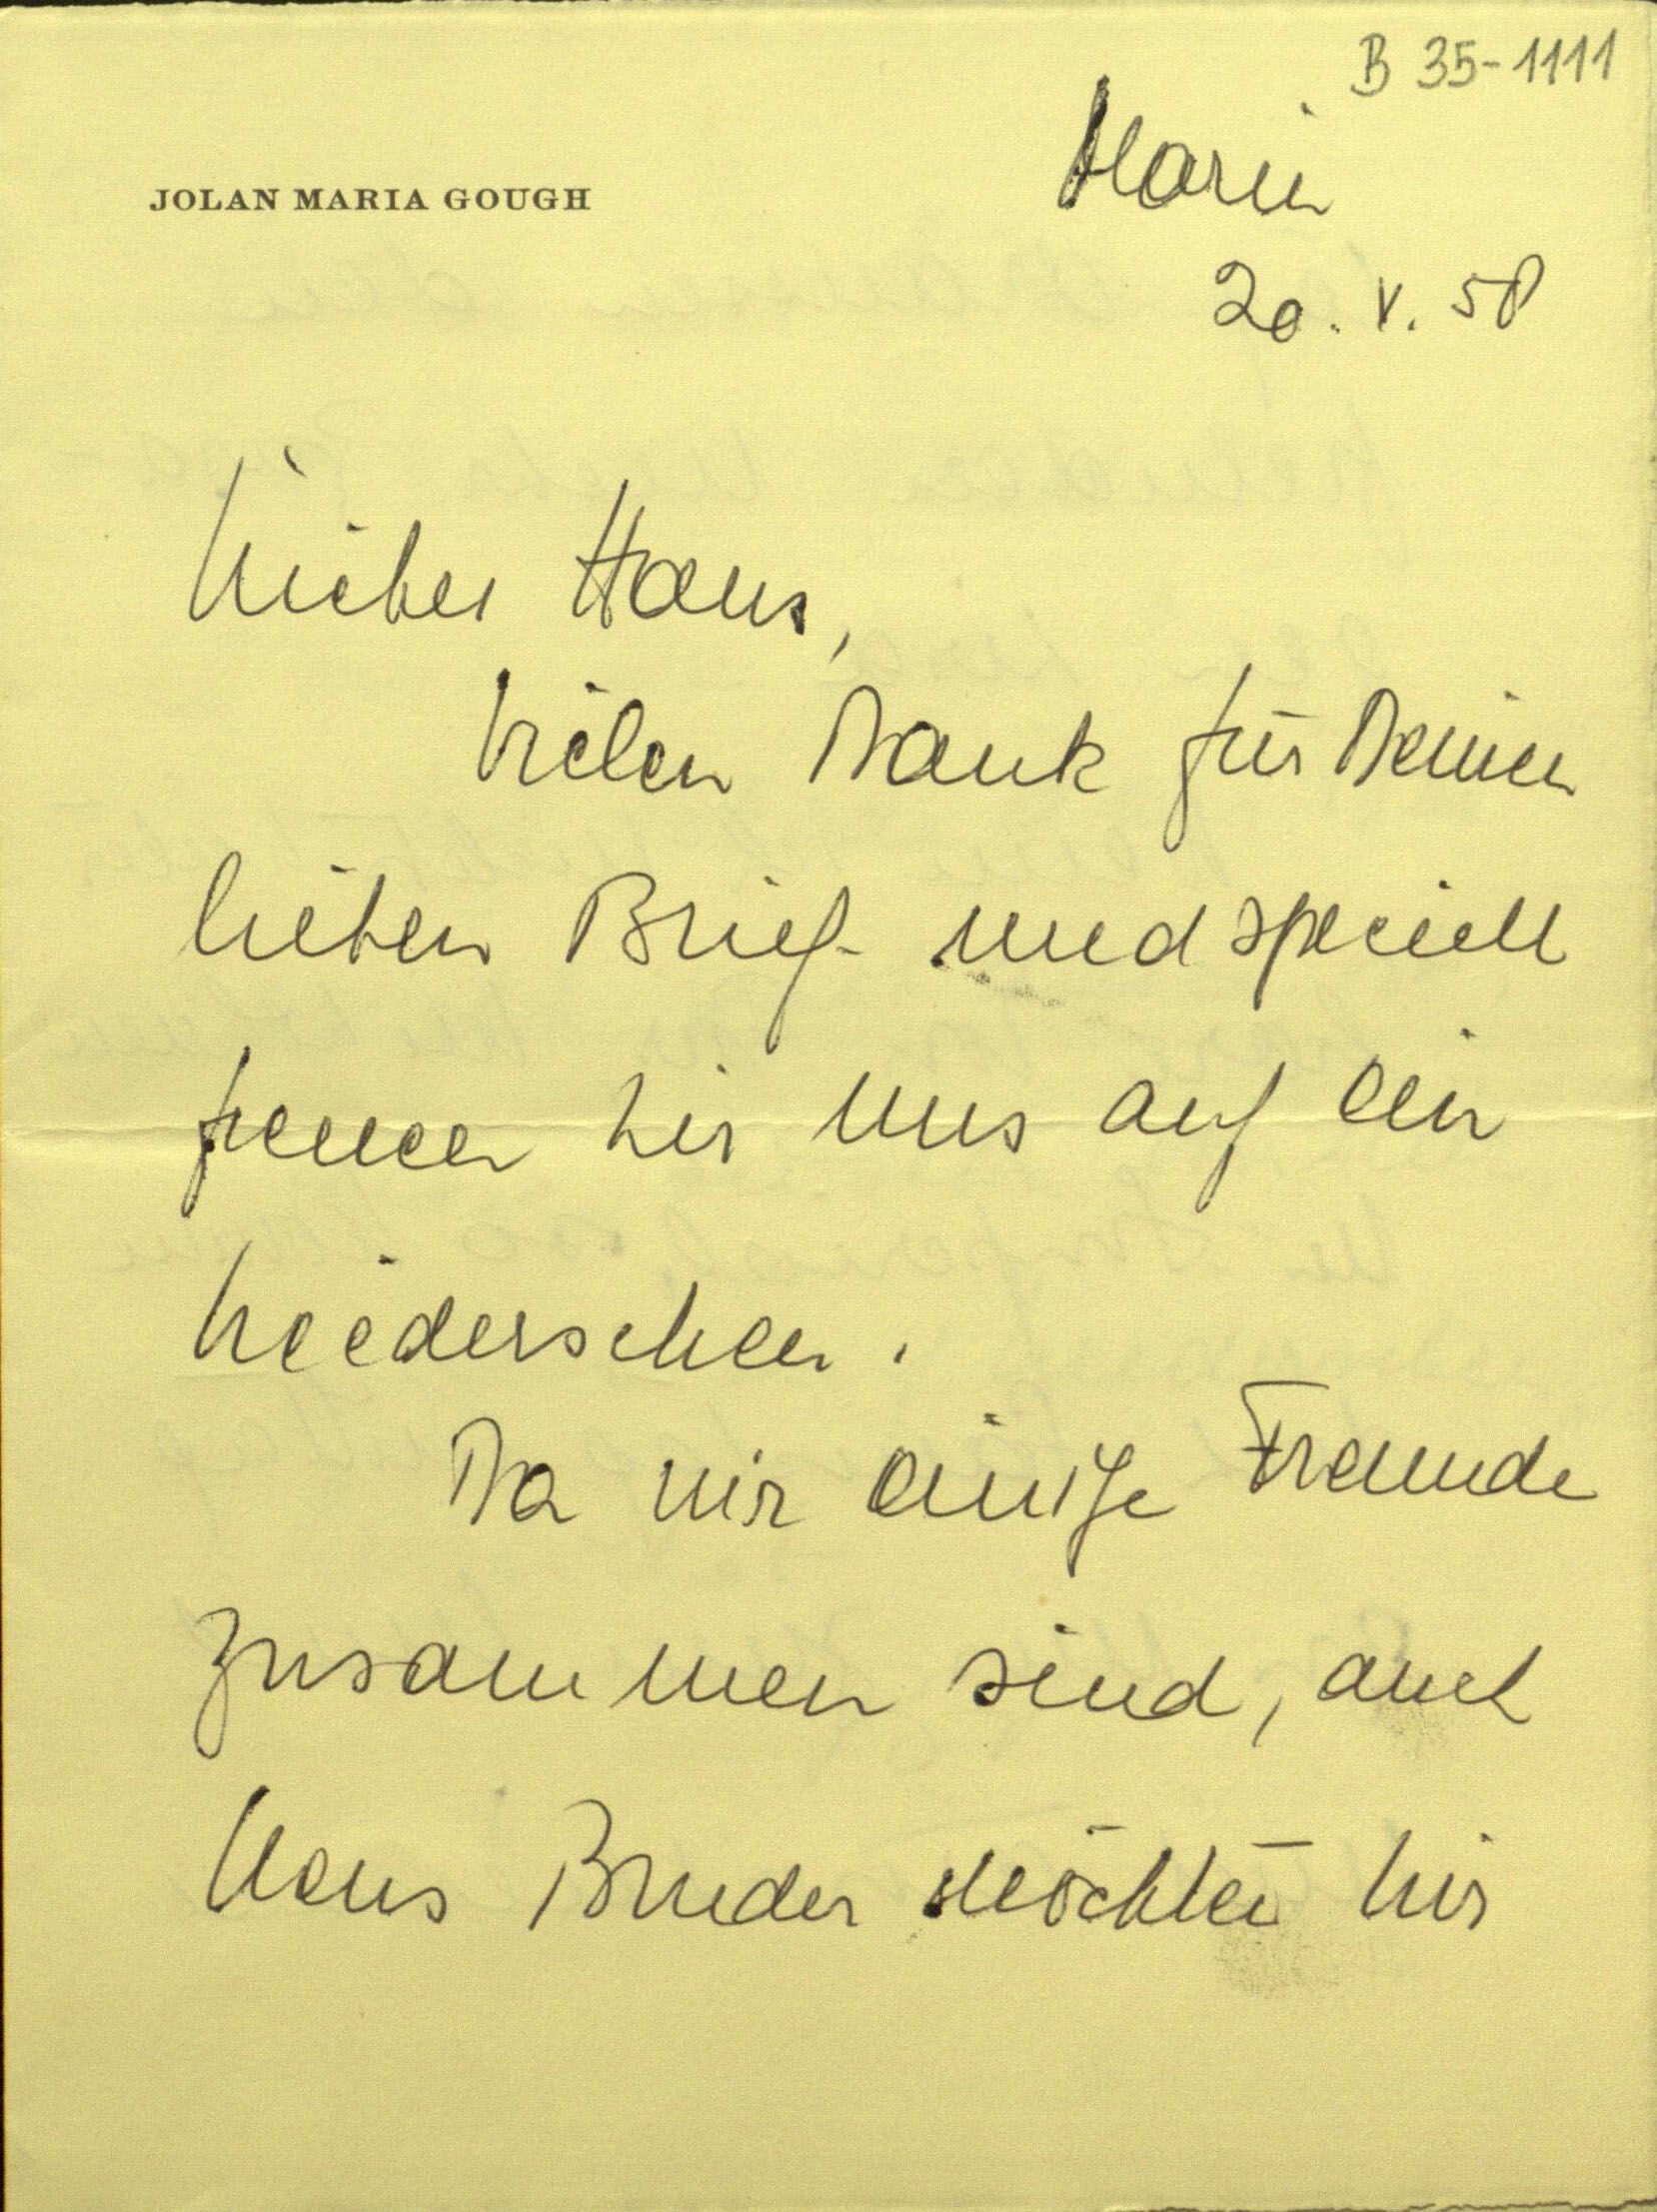 B 35-1111
JOLAN MARIA GOUGH
Marin
20. V. 58
Lieber Hans,
Vielen Dank für Deinen
lieben Brief und speciell
freuen wir uns auf ein
Wiedersehen.
Da wir einige Freunde
zusammen sind, auch
Bruder möchten wir